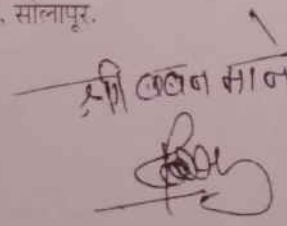 . सोलापूर.
श्री बबन माने